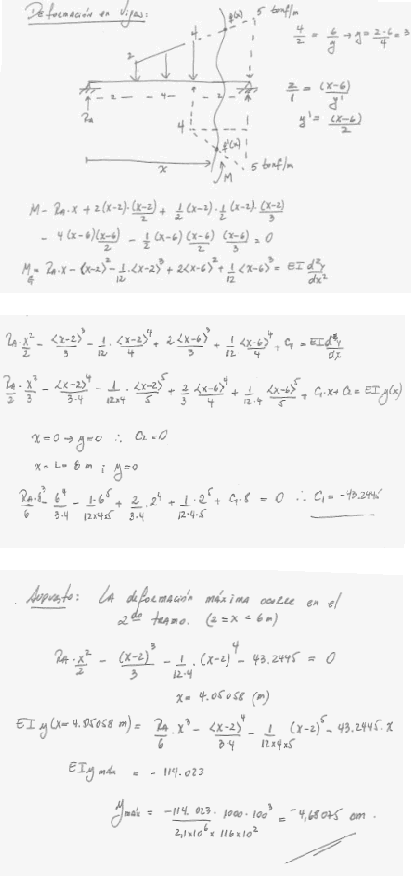 Deformación en Vigas:
f(x)
5 tonf/m
4
2
4/2 = 6/y → y = 2·6/4 = 3
RA
2
4
2
2/1 = (x-6)/y'
y' = (x-6)/2
4
f'(x)
5 tonf/m
x
M
M - RA·x + 2(x-2)·(x-2)/2 + 1/2 (x-2)·1/2 (x-2)·(x-2)/3
- 4(x-6)(x-6)/2 - 1/2 (x-6) (x-6)/2 (x-6)/3 = 0
M = RA·x - (x-2)² - 1/12 <x-2>³ + 2<x-6>² + 1/12 <x-6>³ = EI d²y/dx²
RA·x²/2 - <x-2>³/3 - 1/12 · <x-2>⁴/4 + 2<x-6>³/3 + 1/12 <x-6>⁴/4 + C1 = EI dy/dx
RA/2 · x³/3 - <x-2>⁴/3·4 - 1/12x4 · <x-2>⁵/5 + 2/3 <x-6>⁴/4 + 1/12·4 <x-6>⁵/5 + C1·x + C2 = EI y(x)
x=0 → y=0 ∴ C2=0
x=L=8 m ; y=0
RA·8³/6 - 6⁴/3·4 - 1·6⁵/12x4x5 + 2/3·4 · 2⁴ + 1·2⁵/12·4·5 + C1·8 = 0 ∴ C1 = -43.2445
Supuesto: La deformación máxima ocurre en el
2do tramo. (2 = x = 6 m)
RA·x²/2 - (x-2)³/3 - 1/12·4 · (x-2)⁴ - 43.2445 = 0
x = 4.05058 (m)
EI y(x=4.05058 m) = RA/6 · x³ - <x-2>⁴/3·4 - 1/12x4x5 (x-2)⁵ - 43.2445·x
EI ymáx = -114.023
ymáx = -114.023 · 1000·100³ / 2,1x10⁶ x 116x10² = -4,68075 cm.